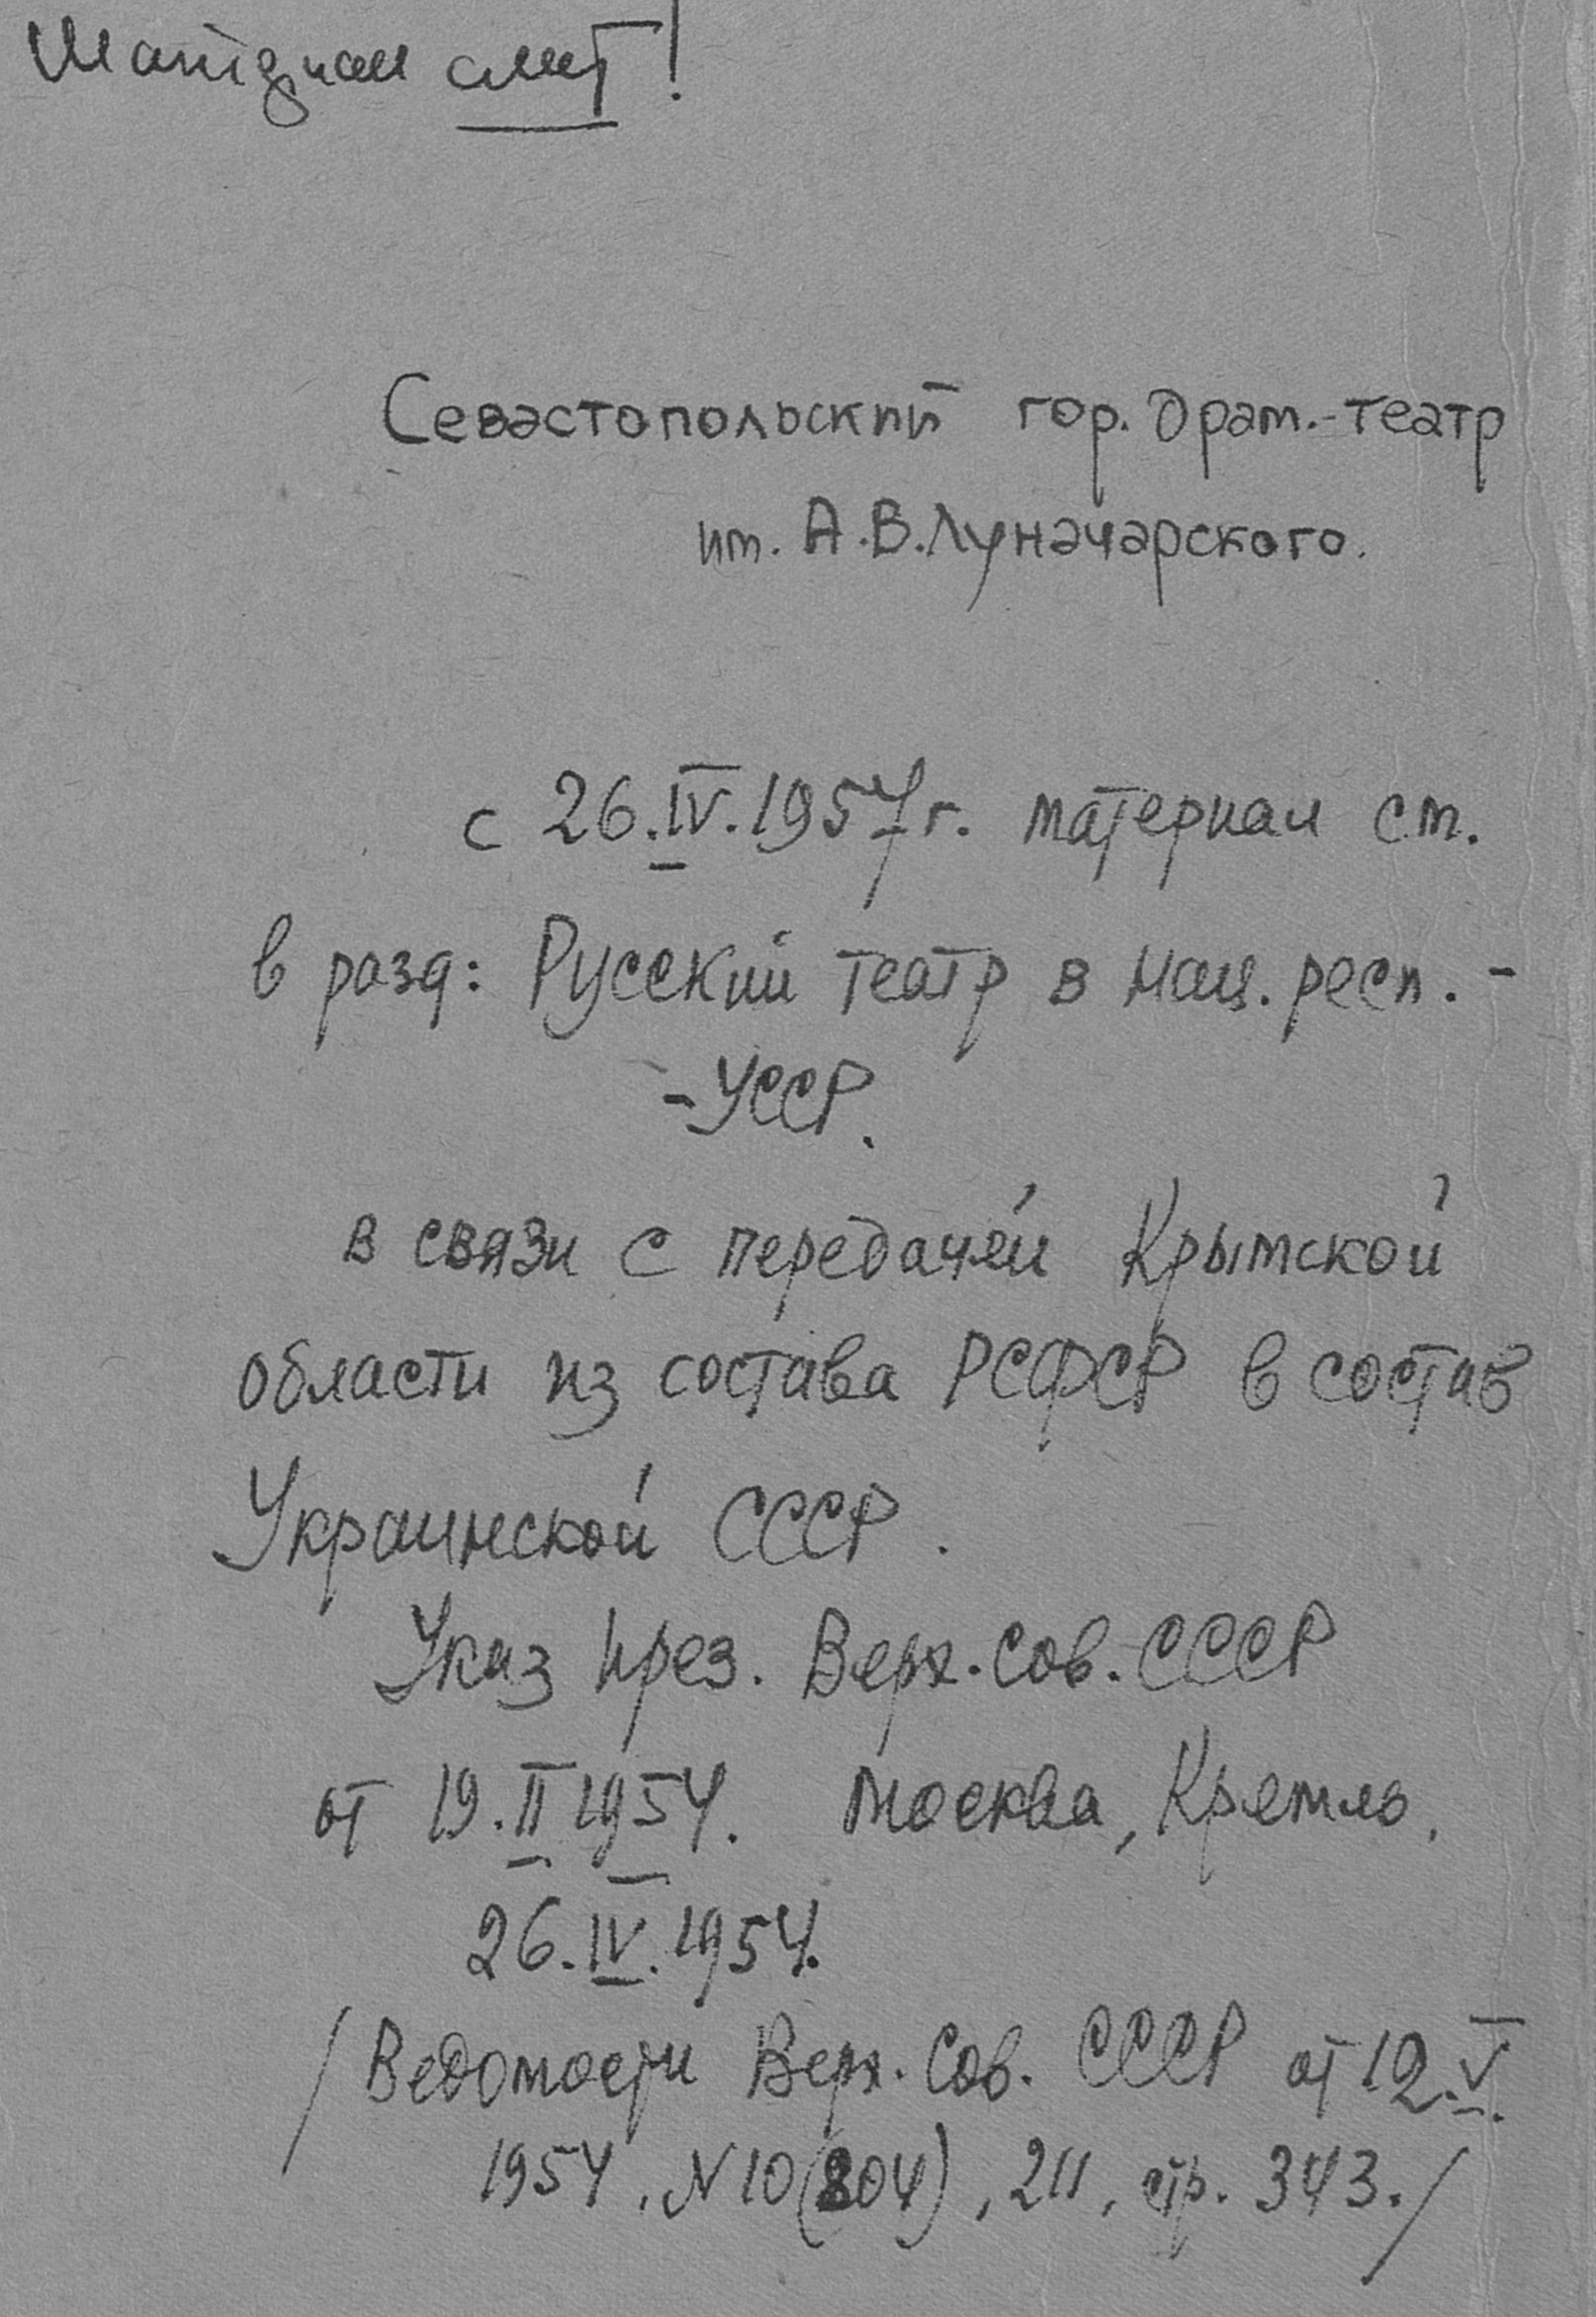 Материал снят!
Севастопольский гор. драм.-театр
им. А.В.Луначарского.
с 26.IV.1957г. материал см.
в разд: Русский театр в нац. респ. -
-УССР.
в связи с передачей Крымской
области из состава РСФСР в состав
Украинской ССР.
Указ През. Верх. Сов. СССР
от 19.II 1954. Москва, Кремль.
26.IV.1954.
/Ведомости Верх. Сов. СССР от 12.V.
1954, N10(804), 211, стр. 343./